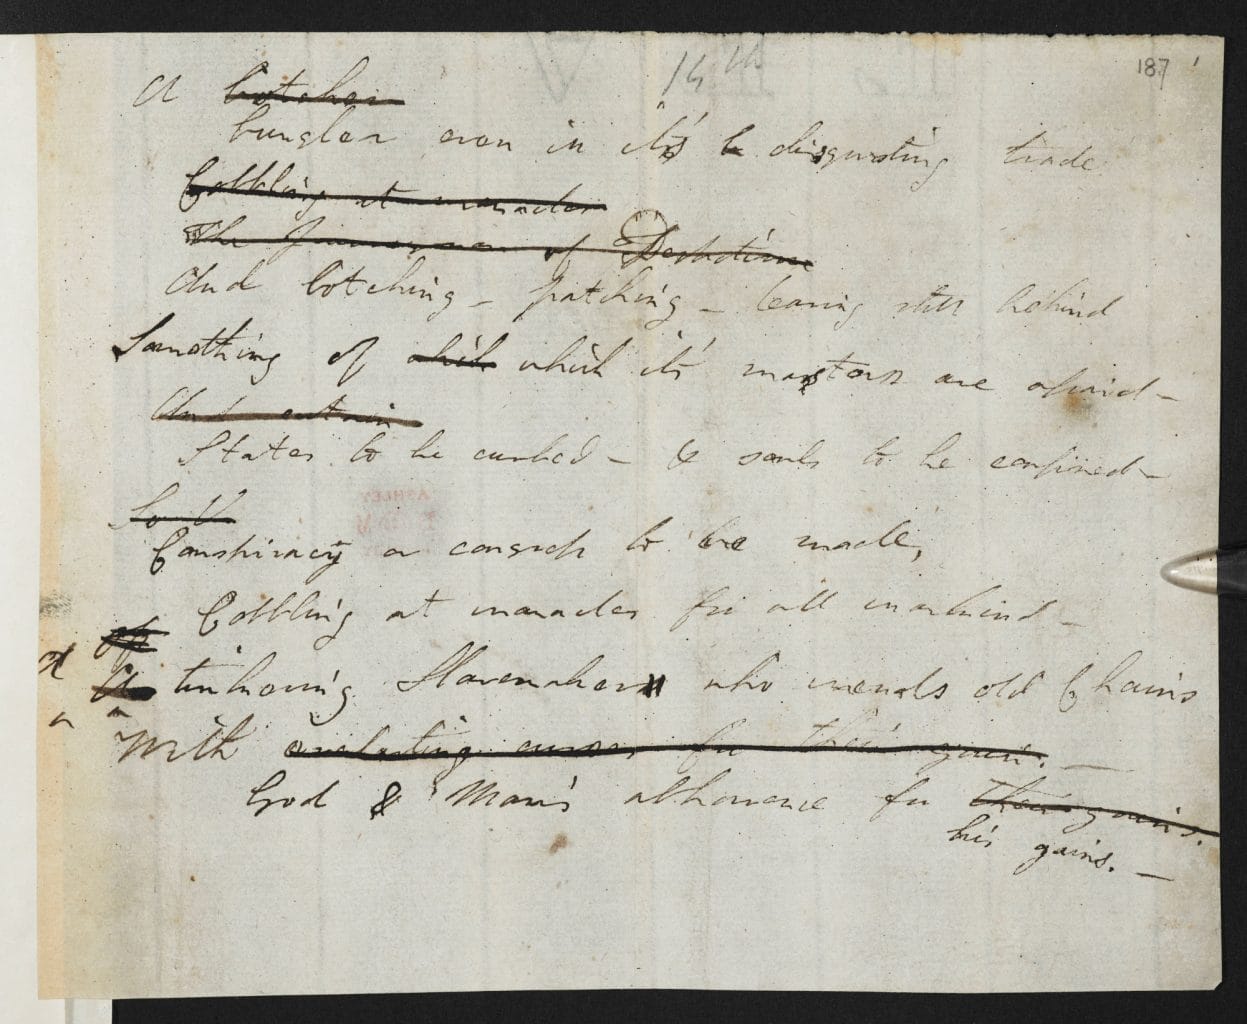 187
14th
A botcher
bungler even in it's' disgusting trade
Cobbling at manacles
The Journeyman of Desbotism
And botching – patching – leaving still behind
Something of which which it's' masters are afraid –
And
States to be curbed – & souls to be confined –
So th
Conspiracy or congress to be made,
Cobbling at manacles for all mankind –
of
A tinkering Slavemaker who mends old Chains
With everlasting curses for their gains. –
God & Man's abhorrence for their gains.
his gains. –
ASHLEY